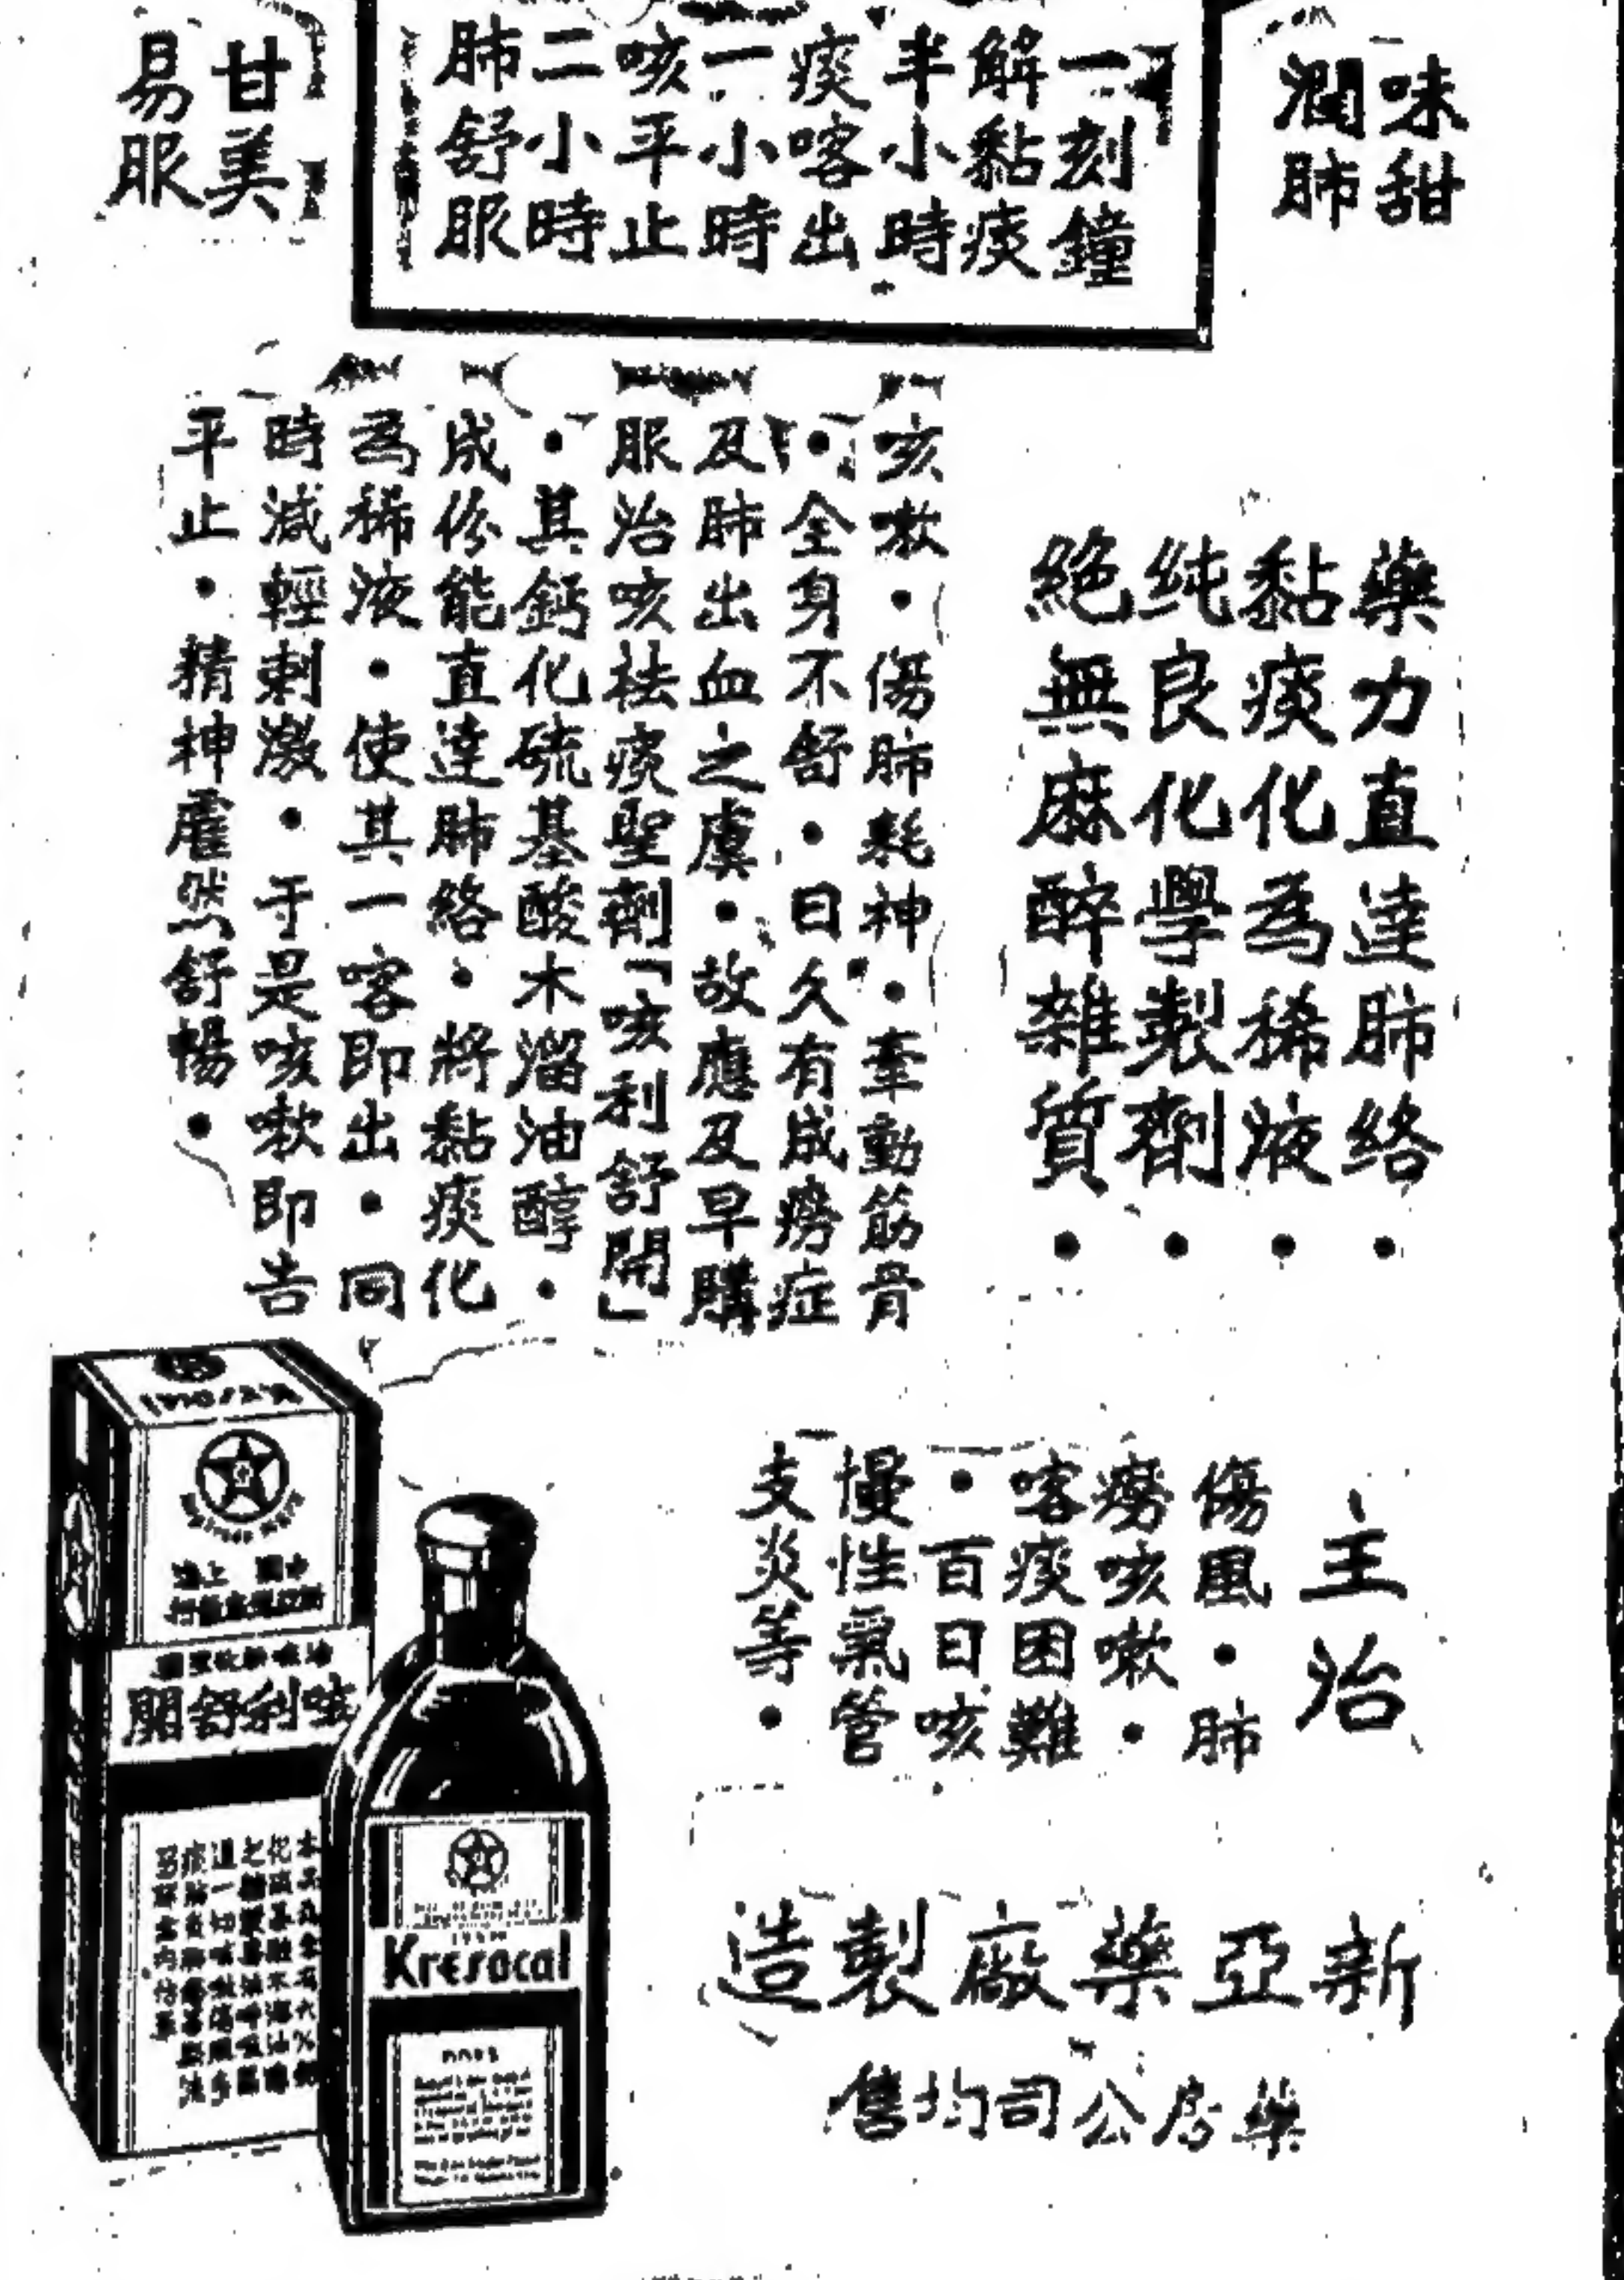 味甜
潤肺
一刻鐘
解黏痰
半小時
痰喀出
一小時
咳平止
二小時
肺舒服
甘美
易服
藥力直達肺絡・
黏痰化為稀液・
純良化學製劑・
絕無麻醉雜質・
咳嗽・傷肺耗神・牽動筋骨
・全身不舒・日久有成癆症
及肺出血之虞・故應及早購
服治咳祛痰聖劑「咳利舒開」
・其鈣化硫基酸木溜油醇・
成份能直達肺絡・將黏痰化
為稀液・使其一喀即出・同
時減輕刺激・于是咳嗽即告
平止・精神霍然舒暢・
主治
傷風・肺
癆咳嗽・
喀痰困難
・百日咳
慢性氣管
支炎等・
新亞藥廠製造
藥房公司均售
咳利舒開
Kresocal